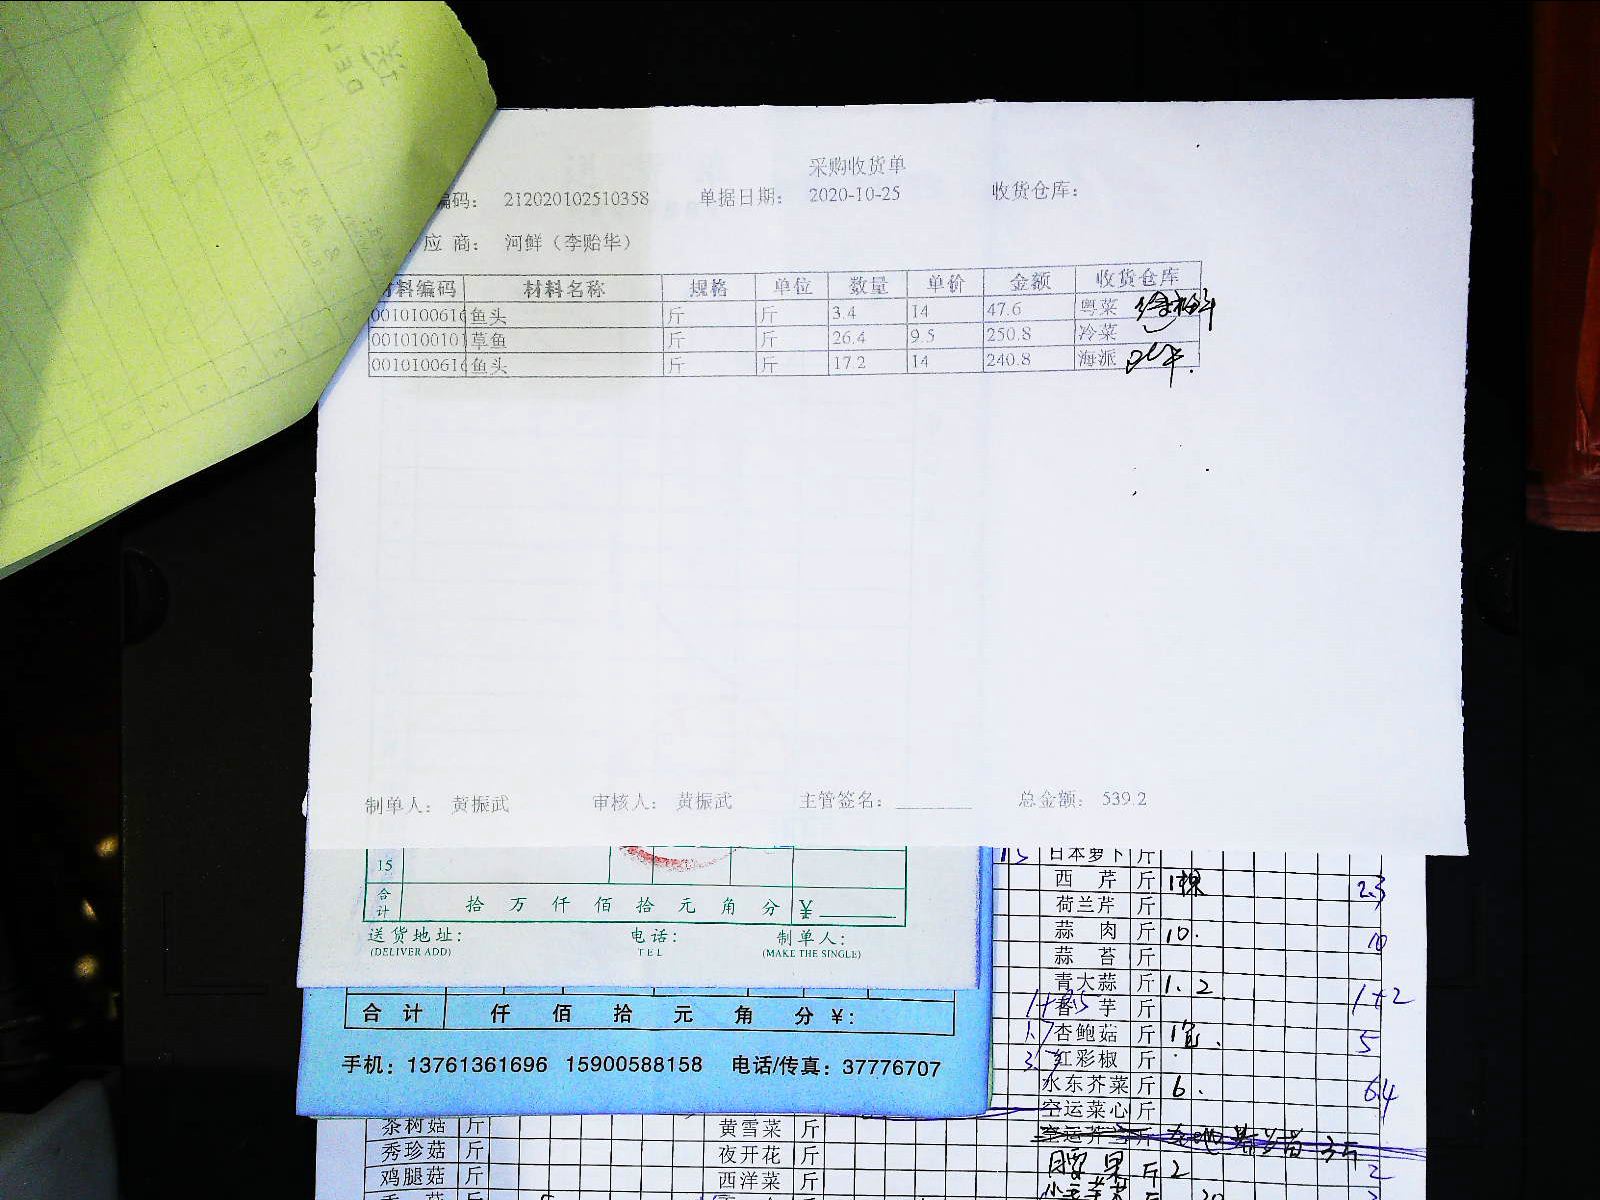 采购收货单
编码： 212020102510358 单据日期： 2020-10-25 收货仓库：
应 商： 河鲜（李贻华）
材料编码 材料名称 规格 单位 数量 单价 金额 收货仓库
0010100616 鱼头 斤 斤 3.4 14 47.6 粤菜
0010100101 草鱼 斤 斤 26.4 9.5 250.8 冷菜
0010100616 鱼头 斤 斤 17.2 14 240.8 海派
制单人： 黄振武 审核人： 黄振武 主管签名： 总金额： 539.2
15
合计 拾 万 仟 佰 拾 元 角 分 ¥
送货地址： 电话： 制单人：
(DELIVER ADD) TEL (MAKE THE SINGLE)
合 计 仟 佰 拾 元 角 分 ¥:
手机：13761361696 15900588158 电话/传真：37776707
日本萝卜 斤
西 芹 斤 1棵 2.3
荷兰芹 斤
蒜 肉 斤 10. 10
蒜 苔 斤
青大蒜 斤 1.2 1+2
香 芋 斤
杏鲍菇 斤 5
红彩椒 斤
水东芥菜 斤 6. 6.4
空运菜心 斤
斤 2 2
茶树菇 斤 黄雪菜 斤
秀珍菇 斤 夜开花 斤
鸡腿菇 斤 西洋菜 斤